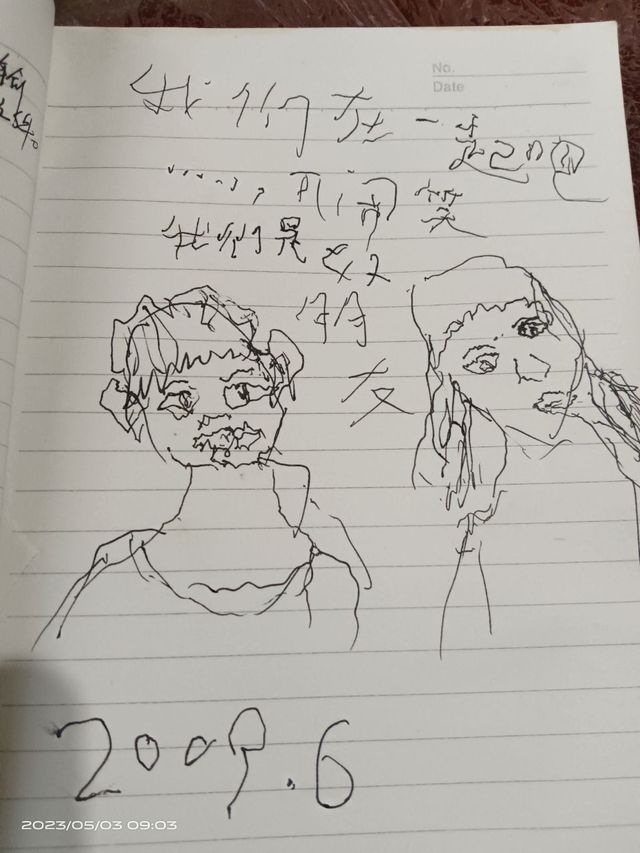 No.
Date
我们在一起吧
......，可闹笑
我们是好
朋
友
2009.6
2023/05/03 09:03